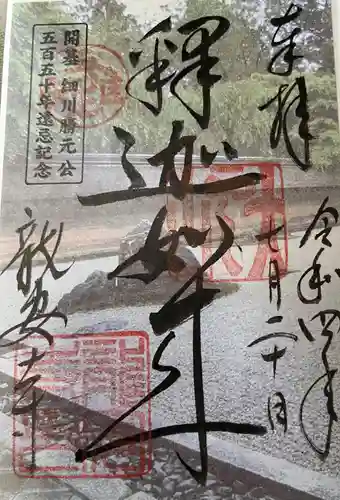 奉拝
令和四年
七月二十日
釋迦如来
龍安寺
開基 細川勝元公
五百五十年遠忌記念